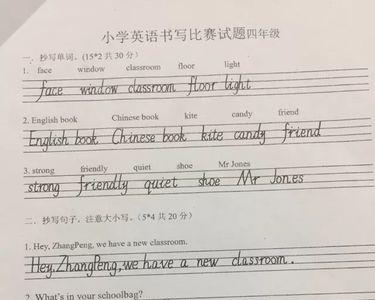 小学英语书写比赛试题四年级
一．抄写单词。(15*2 共 30 分)
1. face window classroom floor light
face window classroom floor light
2. English book Chinese book kite candy friend
English book Chinese book kite candy friend
3. strong friendly quiet shoe Mr Jones
strong friendly quiet shoe Mr Jones
二．抄写句子，注意大小写。(5*4 共 20 分)
1. Hey, ZhangPeng, we have a new classroom.
Hey, ZhangPeng, we have a new classroom.
2. What's in your schoolbag?